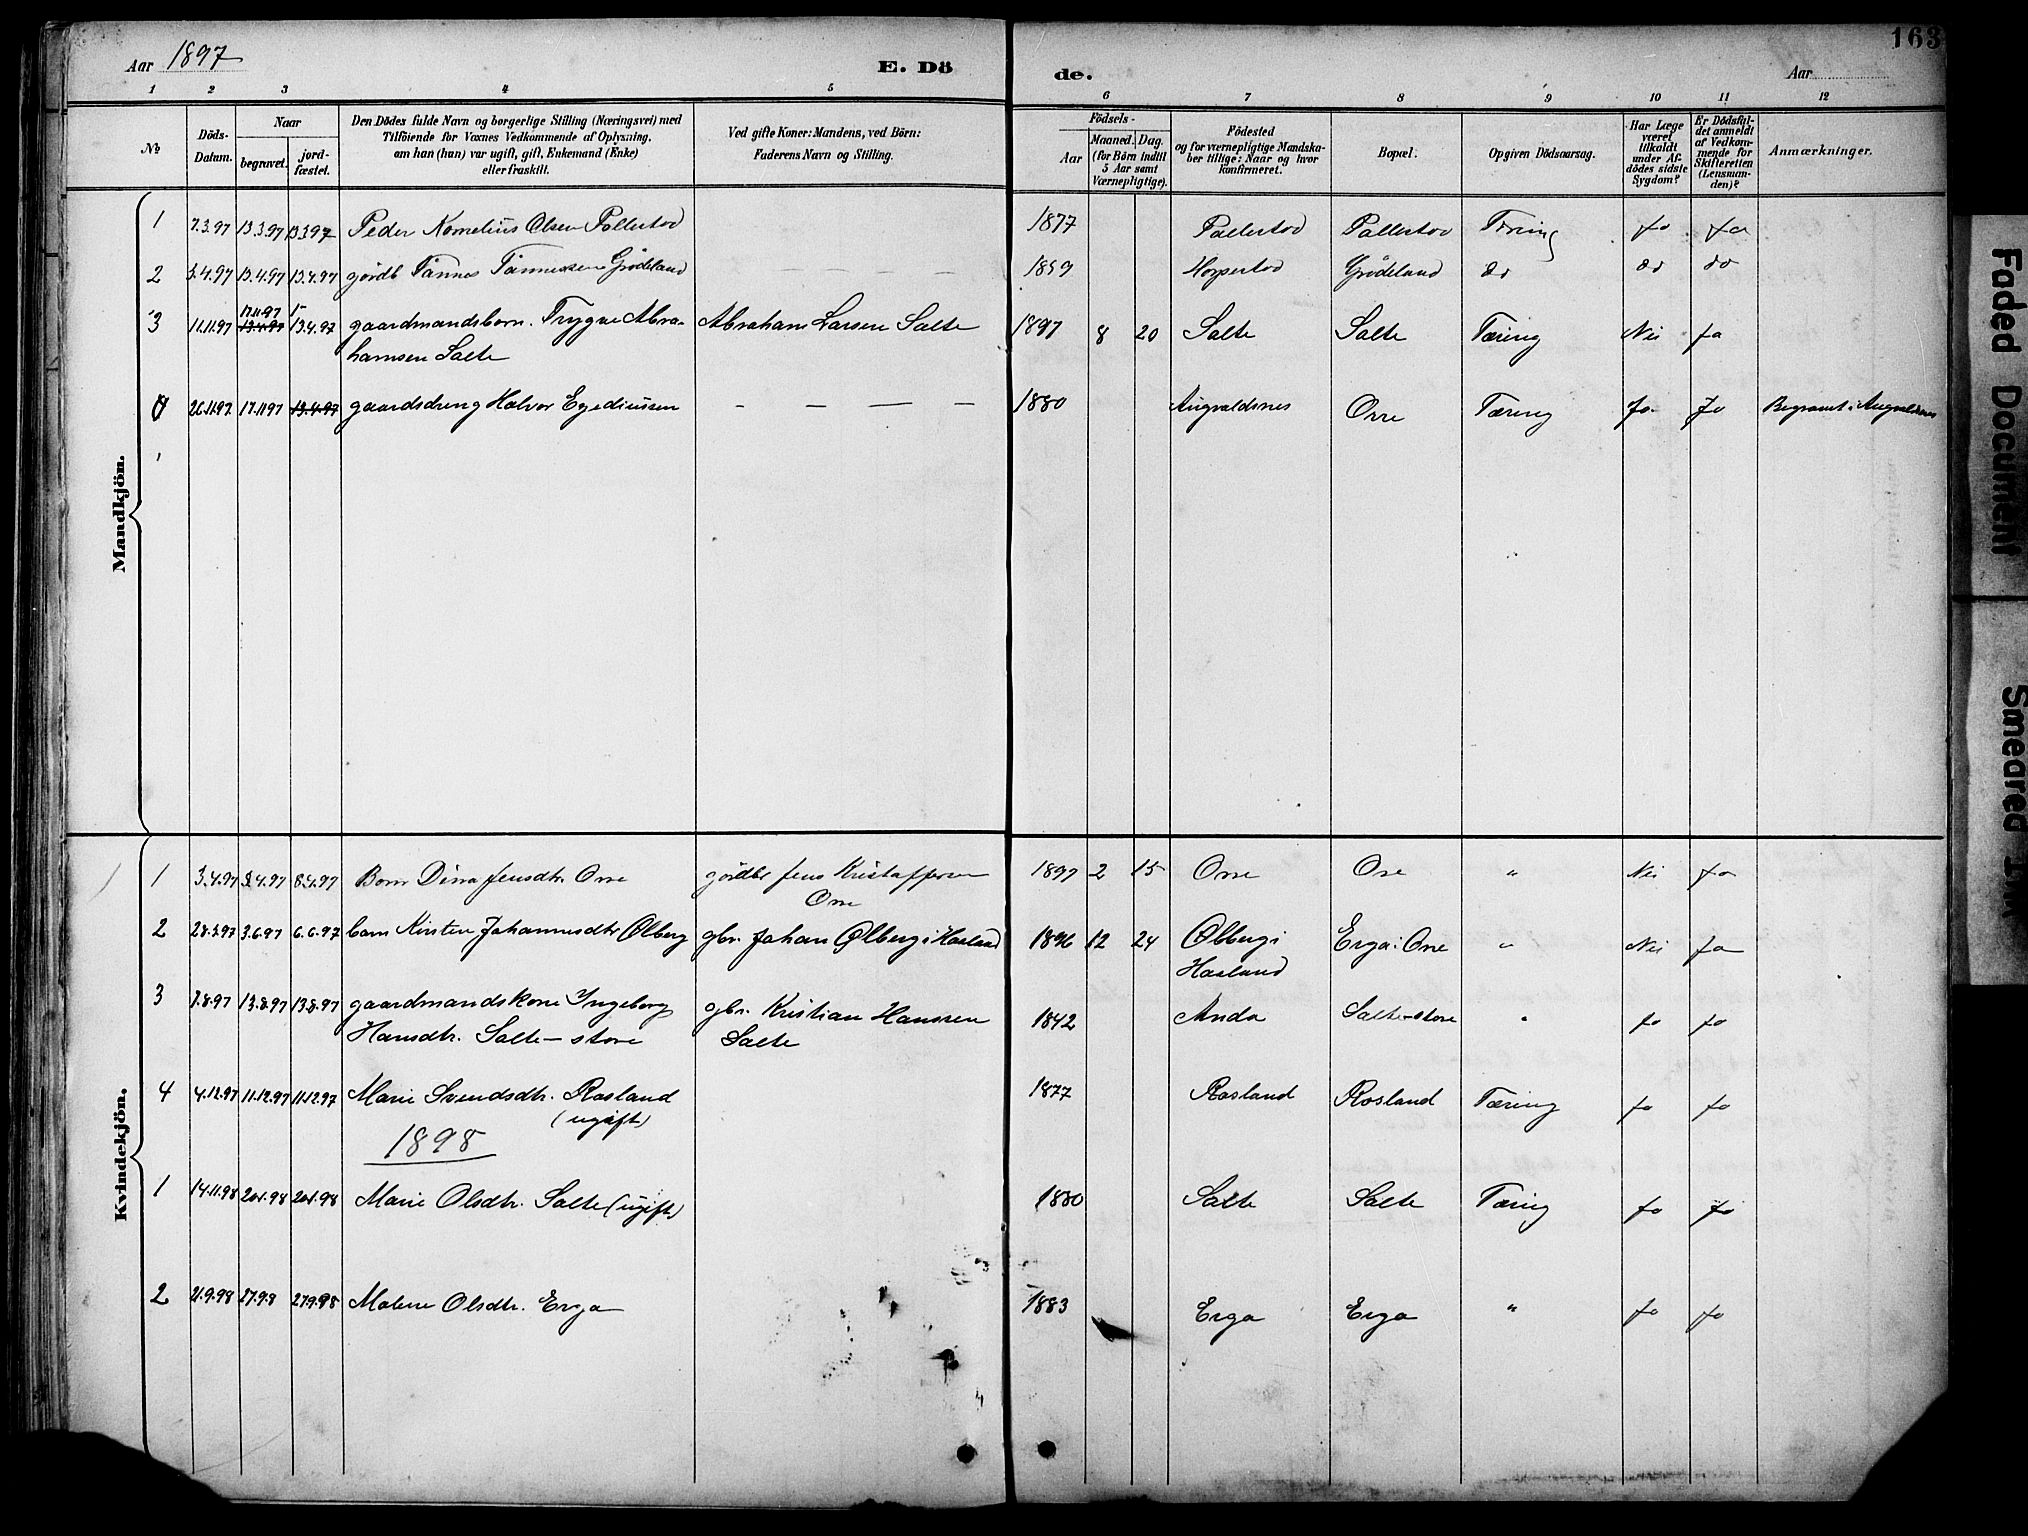 163
Aar 1897
E. Dö de.
Aar
1 2 3 4 5 6 7 8 9 10 11 12
No
Döds-Datum.
Naar
begravet.
jord-fæstet.
Den Dödes fulde Navn og borgerlige Stilling (Næringsvei) med
Tilföiende for Voxnes Vedkommende af Oplysning,
om han (hun) var ugift, gift, Enkemand (Enke)
eller fraskilt.
Ved gifte Koner: Mandens, ved Börn:
Faderens Navn og Stilling.
Födsels-
Aar
Maaned. Dag.
(for Börn indtil
5 Aar samt
Værnepligtige).
Födested
og for værnepligtige Mandska-
ber tillige: Naar og hvor
konfirmeret.
Bopæl.
Opgiven Dödsaarsag.
Har Læge
været
tilkaldt
under Af-
dödes sidste
Sygdom?
Er Dödsfal-
det anmeldt
af Vedkom-
mende for
Skifteretten
(Lensman-
den)?
Anmærkninger.
Mandkjön.
1 7.3.97 13.3.97 13.3.97 Peder Kornelius Olsen Pollestad 1877 Pollestad Pollestad Tæring Ja Ja
2 5.4.97 13.4.97 13.4.97 gårdb Tønnes Tønnessen Grødeland 1859 Horpestad Grødeland do do do
17.11.97
3 11.11.97 13.4.97 13.4.97 gaardmandsbarn. Trygve Abra- Abraham Larsen Salte 1897 8 20 Salte Salte Tæring Nei Ja
hamsen Salte
26.11.97 17.11.97 13.4.97 gaardsdreng Halvor Egediussen — — — — 1880 Augvaldsnes Orre Tæring Ja Ja Begravet i Augvaldsnes
Kvindekjön.
1 3.4.97 8.4.97 8.4.97 Barn Dina Jensdtr. Orre gårdbr Jens Kristoffersen 1897 2 15 Orre Orre " Nei Ja
Orre
2 28.5.97 3.6.97 6.6.97 barn Kirsten Johannesdtr Ølberg gbr. Johan Ølberg i Haaland 1896 12 24 Ølberg i Erga i Orre " Nei Ja
Haaland
3 7.8.97 13.8.97 13.8.97 gaardmandskone Ingeborg gbr. Kristian Hanssen 1842 Anda Salte-store " Ja Ja
Hansdtr. Salte-store Salte
4 4.12.97 11.12.97 11.12.97 Marie Svendsdtr. Rosland 1877 Rosland Rosland Tæring Ja Ja
(ugift)
1898
1 14.11.98 20.1.98 20.1.98 Marie Olsdtr. Salte (ugift) 1880 Salte Salte Tæring Ja Ja
2 21.9.98 27.9.8 27.9.98 Malene Olsdtr. Erga 1883 Erga Erga " Ja Ja
Faded Document
Smeared Ink